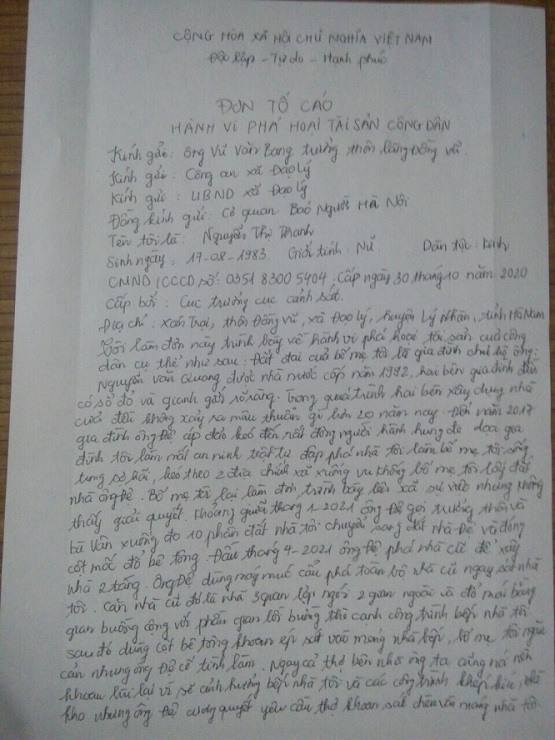 CỘNG HÒA XÃ HỘI CHỦ NGHĨA VIỆT NAM
Độc lập - Tự do - Hạnh phúc
ĐƠN TỐ CÁO
HÀNH VI PHÁ HOẠI TÀI SẢN CÔNG DÂN
Kính gửi: ông Vũ Văn Bang trưởng thôn làng Đồng Vũ.
Kính gửi: Công an xã Đạo Lý
Kính gửi: UBND xã Đạo Lý
Đồng kính gửi: Cơ quan Báo Người Hà Nội
Tên tôi là: Nguyễn Thị Thanh
Sinh ngày: 17-08-1983. Giới tính: Nữ Dân tộc: kinh
CMND/CCCD số: 0351 8300 5404, Cấp ngày 30 tháng 10 năm 2020
Cấp bởi: Cục trưởng cục cảnh sát.
Địa chỉ: Xóm Trại, thôn Đồng Vũ, xã Đạo Lý, huyện Lý Nhân, tỉnh Hà Nam
Tôi làm đơn này trình bày về hành vi phá hoại tài sản của công
dân cụ thể như sau: Đất đai của bố mẹ tôi là gia đình chủ hộ ông:
Nguyễn Văn Quang được nhà nước cấp năm 1992, hai bên gia đình đều
có sổ đỏ và gianh giới rõ ràng. Trong quá trình hai bên xây dựng nhà
cửa đều không xảy ra mâu thuẫn gì hơn 20 năm nay. Đến năm 2017
gia đình ông Đệ áp đảo kéo đến rất đông người hành hung đe dọa gia
đình tôi làm mất an ninh trật tự đập phá nhà tôi làm bố mẹ tôi sống
trong sợ hãi, kéo theo 2 địa chính xã xuống vu khống bố mẹ tôi lấy đất
nhà ông Đệ. Bố mẹ tôi lại làm đơn trình bày lên xã sự việc nhưng không
thấy giải quyết. Khoảng giữa tháng 1-2021 ông Đệ gọi trưởng thôn và
bà Vân xuống đo 10 phần đất nhà tôi chuyển sang đất nhà Đệ và đóng
cột mốc đổ bê tông. Đầu tháng 4-2021 ông Đệ phá nhà cũ để xây
nhà 2 tầng. Ông Đệ dùng máy múc cẩu phá toàn bộ nhà cũ ngay sát nhà
tôi. Căn nhà cũ đó là nhà 3 gian lợp ngói 2 gian ngoài và đổ mái bằng
gian buồng cộng với phần gian lồi buồng thì cạnh công trình bếp nhà tôi
sau đó dùng cột bê tông khoan ép sát vào móng nhà bếp, bố mẹ tôi ngăn
cản nhưng ông Đệ cố tình làm. Ngay cả thợ bên nhà ông ta cũng nói nên
khoan lùi lại vì sẽ ảnh hưởng bếp nhà tôi và các công trình khép kín, nhà
kho nhưng ông Đệ cương quyết yêu cầu thợ khoan sát chân vào móng nhà tôi.